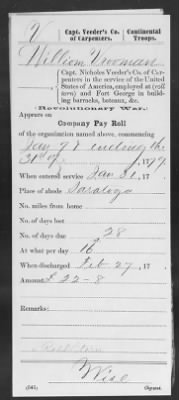 V | Capt. Veeder's Co. of Carpenters. | Continental Troops.
William Vrooman
Capt. Nicholas Veeder's Co. of Carpenters in the service of the United States of America, employed at (with them) and Fort George in building barracks, boteaux, &c.
Revolutionary War.
Appears on
Company Pay Roll
of the organization named above, commencing
Jany 9th ending the
31st of , 1779
When entered service Jan 31, 17
Place of abode Saratoga
No. miles from home
No. of days lost
No. of days due 28
At what per day 16
When discharged Feb 27, 17
Amount £ 22-8
Remarks:
Wise
(585) Copyist.